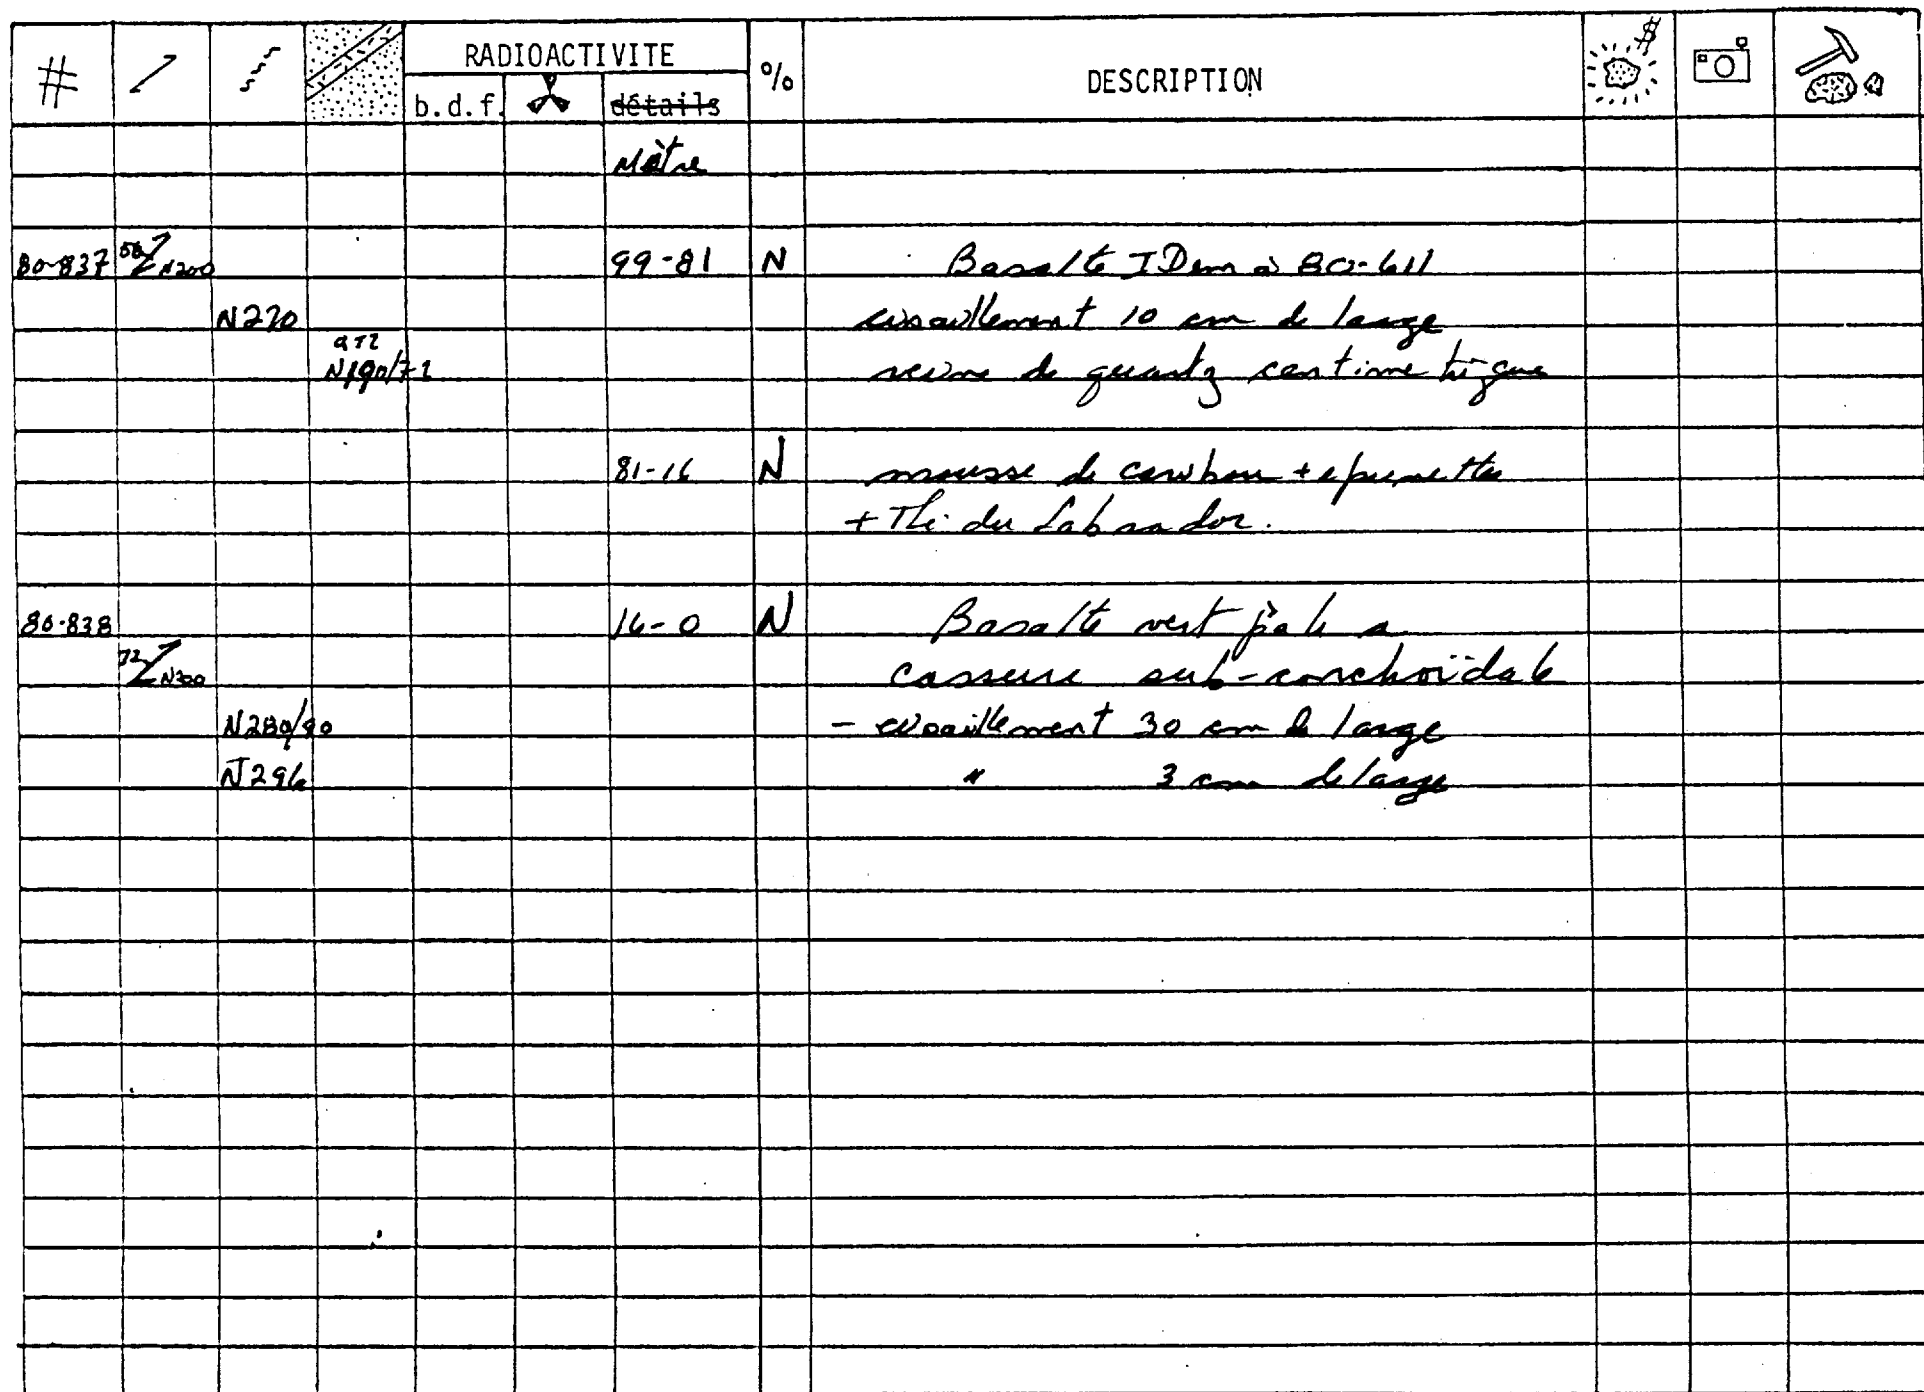 # RADIOACTIVITE % DESCRIPTION $
b.d.f. détails
Mètre
80-837 58 N200 99-81 N Basalte IDem à 80-611
N270 cisaillement 10 cm de large
QTZ
N190/72 veine de quartz centimetrique
81-16 N mousse de caribou + epinettes
+ Thé du Labrador.
80-838 16-0 N Basalte vert pâle a
72 N300 cassure sub-conchoïdale
N280/90 - cisaillement 30 cm de large
N296 " 3 cm de large